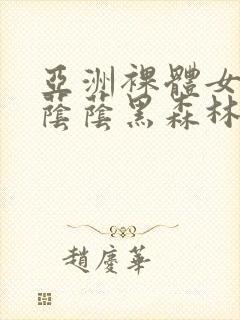 亞洲裸體女
蔭蔭黑森林
趙慶華